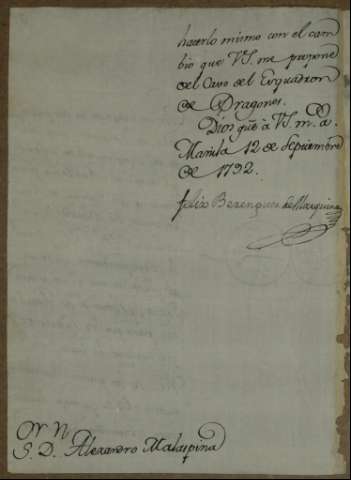 hacerlo mismo con el cam
bio que VS. me propone
del Cavo del Esquadron
de Dragones.
Dios gue. à VS. m. a.
Manila 12 de Septiembre
de 1792.
Felix Berenguer de Marquina
S. D. Alexandro Malaspina